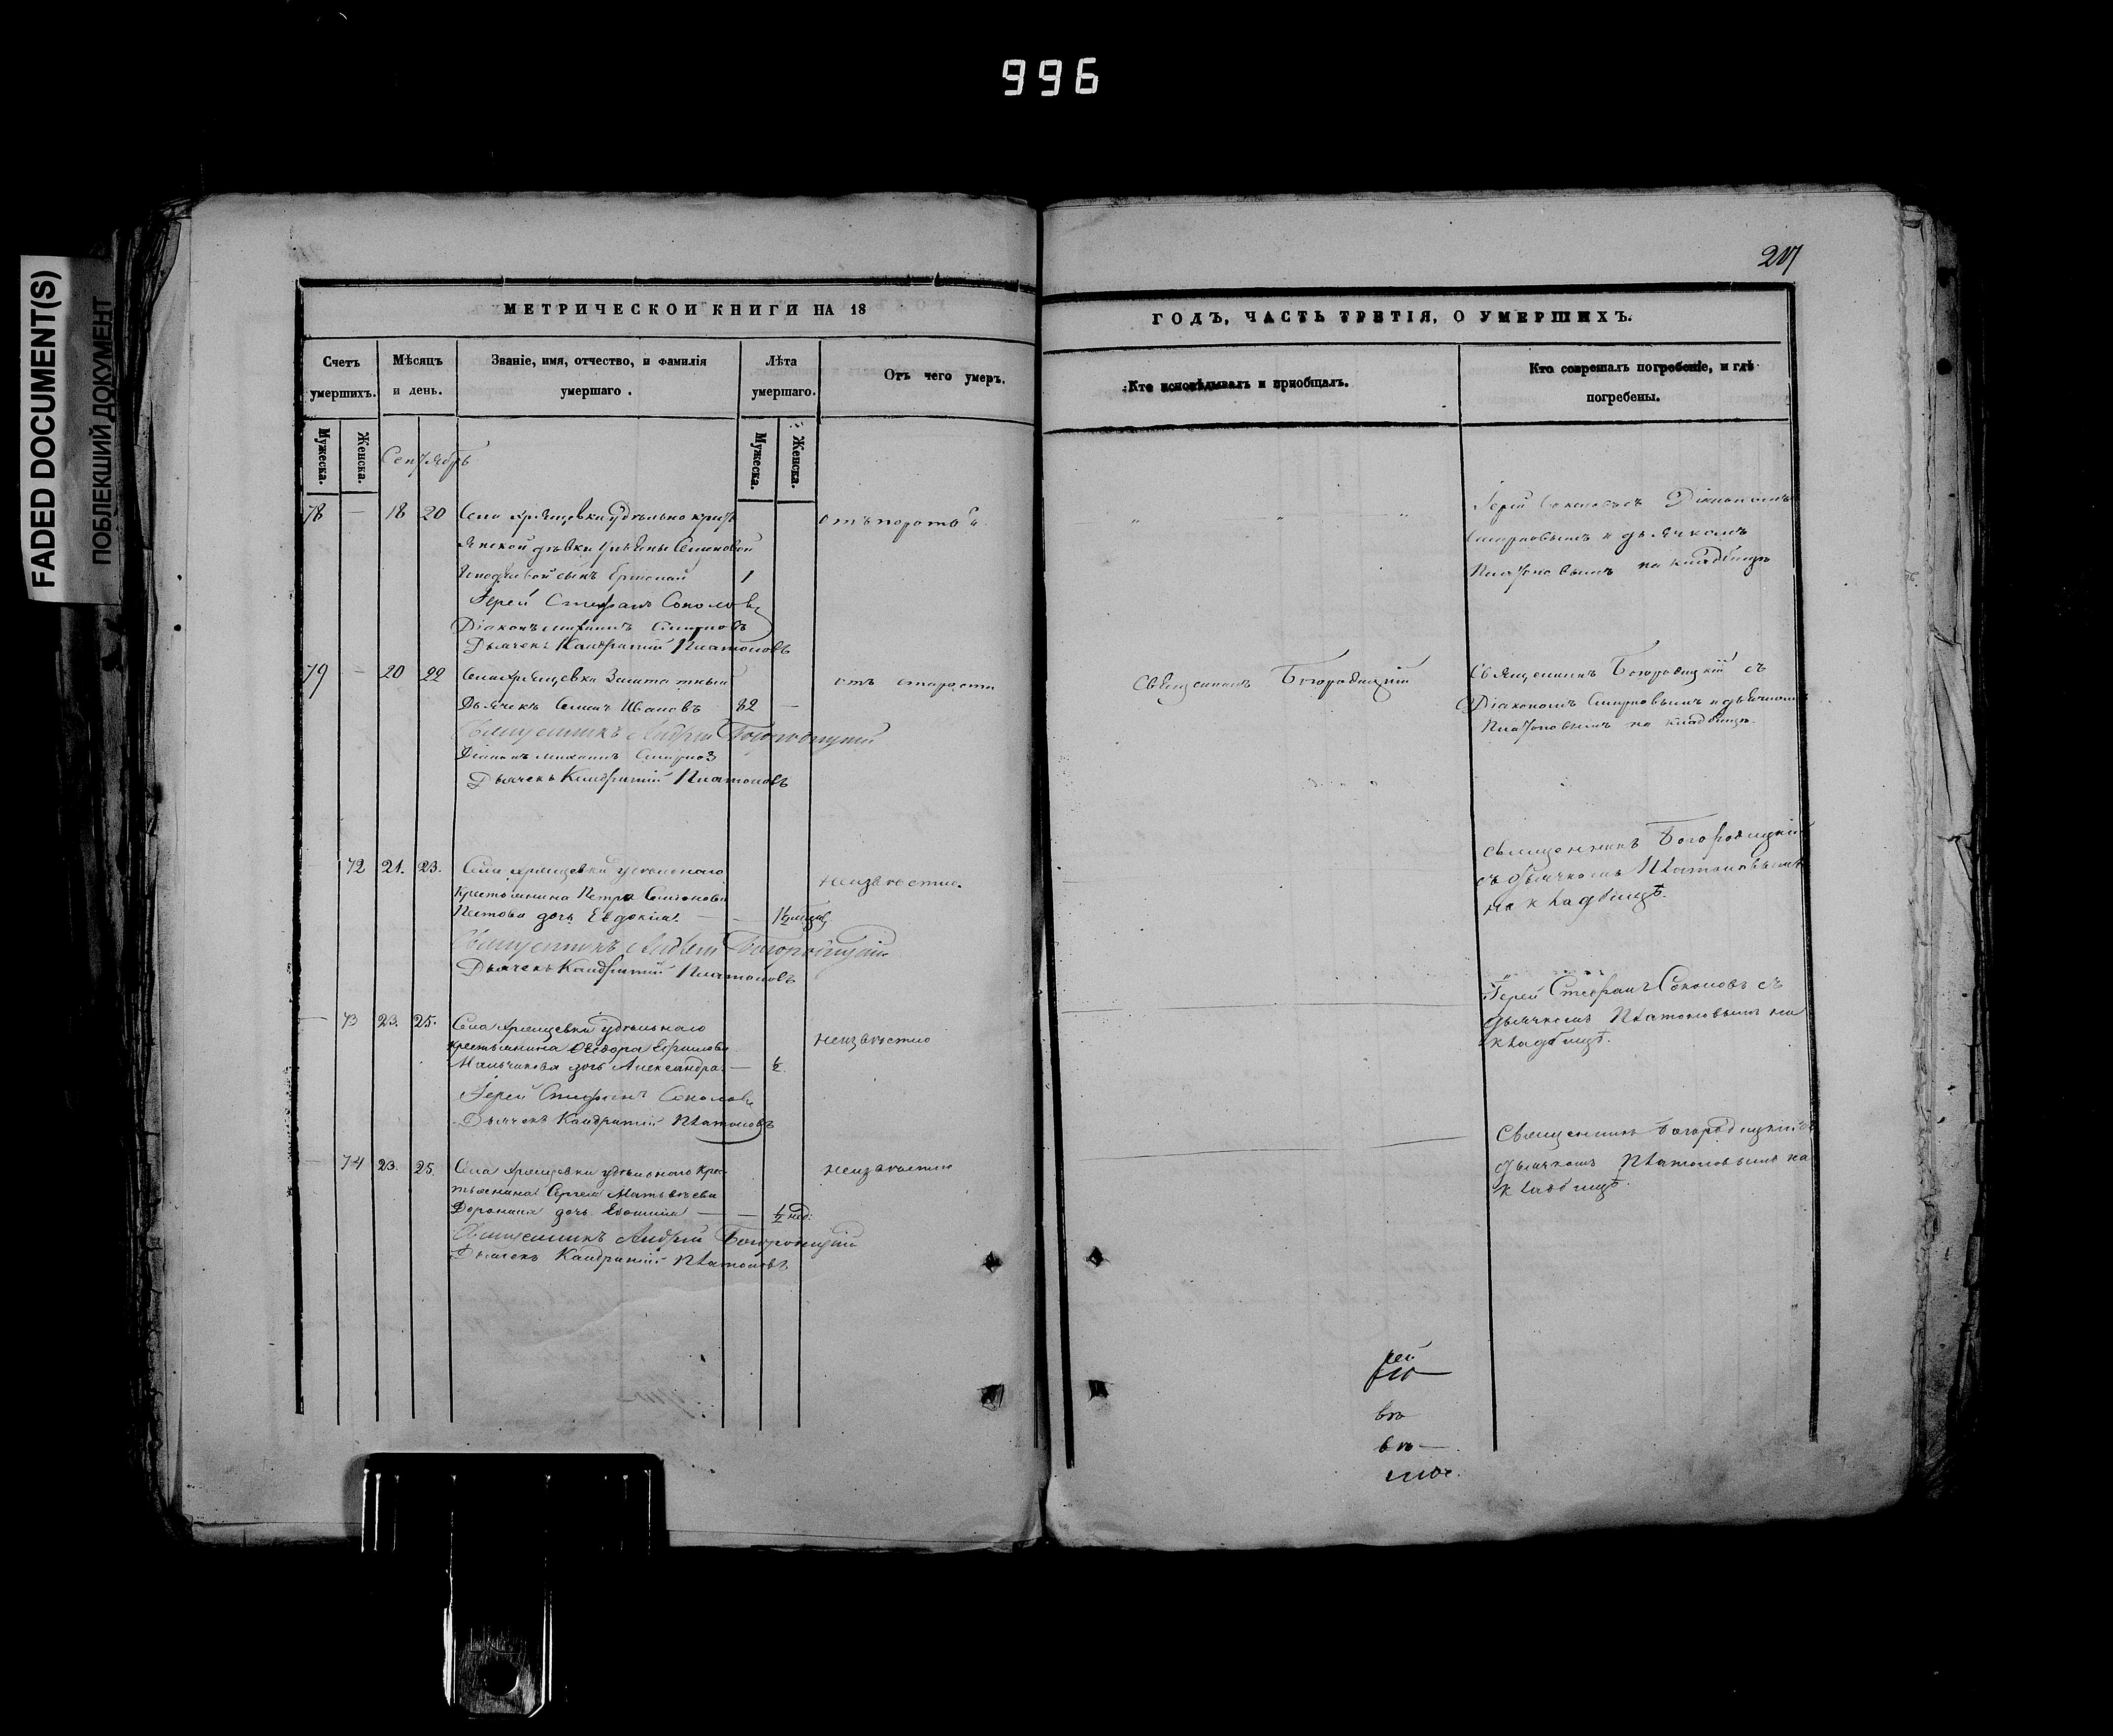 996
FADED DOCUMENT(S)
ПОБЛЕКШИЙ ДОКУМЕНТ
217
МЕТРИЧЕСКОЙ КНИГИ НА 18
ГОДЪ, ЧАСТЬ ТРЕТІЯ, О УМЕРШИХЪ.
Счетъ умершихъ.
Мѣсяцъ и день.
Званіе, имя, отчество, и фамилія умершаго.
Лѣта умершаго.
Отъ чего умеръ.
Кто исповѣдывалъ и пріобщалъ.
Кто совершалъ погребеніе, и гдѣ погребены.
Мужеска.
Женска.
Мужеска.
Женска.
Сентябрь
78 — 18 20 Села Хрящевки удѣльно крест
янской дѣвки Семеновой
сынъ 1
Іерей Стефанъ Соколовъ
Діаконъ Михаилъ Смирновъ
Дьячекъ Кандратій Платоновъ
Іерей Соколовъ съ Діакономъ
Смирновымъ и дьячкомъ
Платоновымъ на кладбищѣ
79 — 20 22 Села Хрящевки Заштатный отъ старости
Дьячекъ Семенъ Ивановъ 82 —
Священникъ Андрей Богородицкій
Діаконъ Михаилъ Смирнов
Дьячекъ Кандратій Платоновъ
Священникъ Богородицкій
Священникъ Богородицкій съ
Діакономъ Смирновымъ и дьячкомъ
Платоновымъ на кладбищѣ.
— 72 21. 23. Села Хрящевки удѣльнаго неизвѣстно.
Крестьянина Петра Семенова
дочь Евдокія. — —
Священникъ Андрей Богородицкій
Дьячекъ Кандратій Платоновъ
Священникъ Богородицкій
съ дьячкомъ Платоновымъ
на кладбищѣ.
— 73 23. 25. Села Хрящевки удѣльнаго неизвѣстно
крестьянина Ѳеодора Ефимова
Мальчикова дочь Александра — ½
Іерей Стефанъ Соколовъ
Дьячекъ Кандратій Платоновъ
Іерей Стефанъ Соколовъ съ
дьячкомъ Платоновымъ на
кладбищѣ.
— 74 23. 25. Села Хрящевки удѣльнаго крес- неизвѣстно
тьянина Сергея Матвѣева
Доронина дочь — — ½ нед:
Священникъ Андрей Богородицкій
Дьячекъ Кандратій Платоновъ
Священникъ Богородицкій съ
дьячкомъ Платоновымъ на
кладбищѣ.